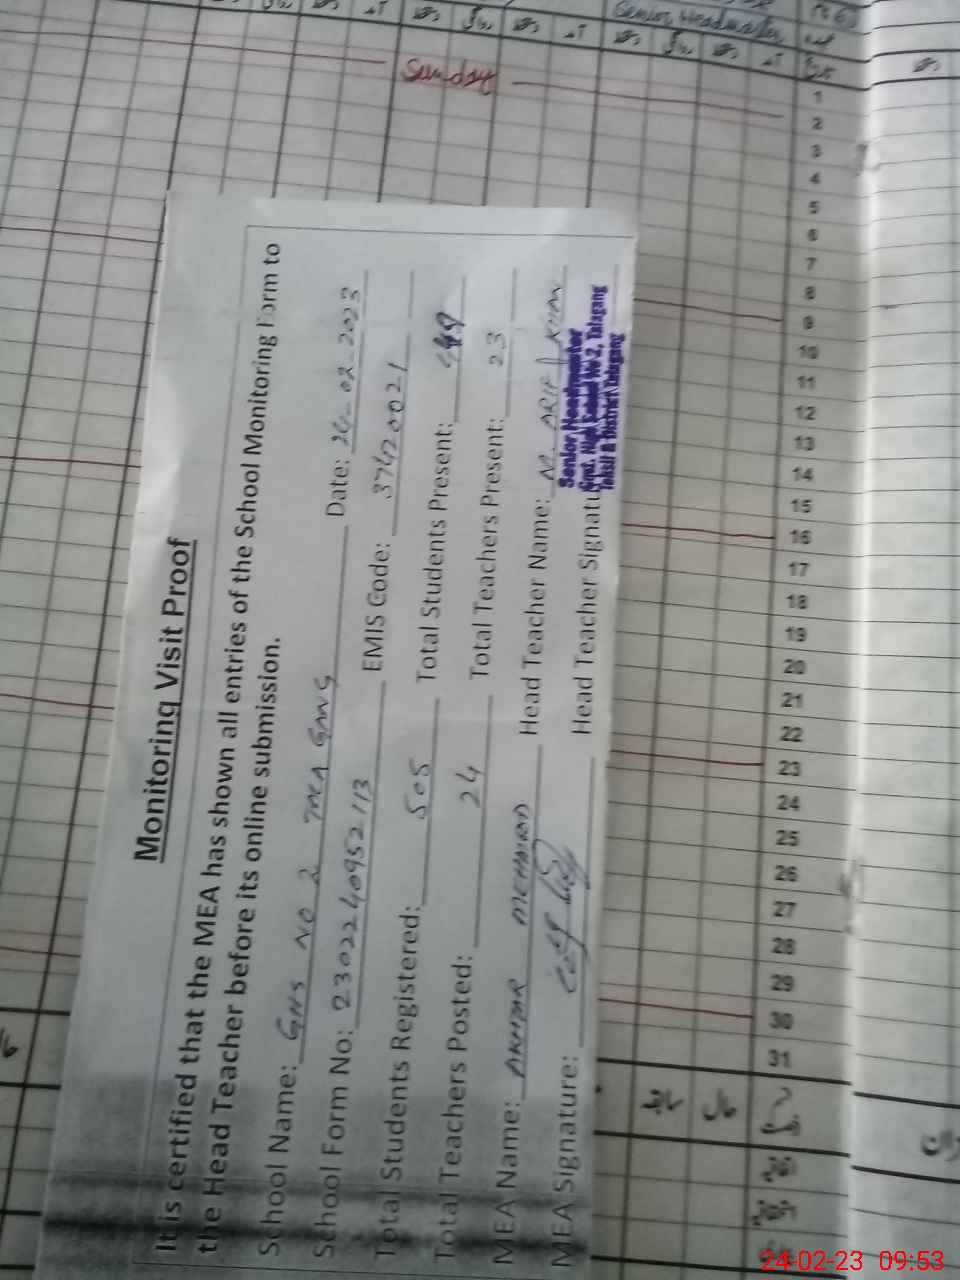 Monitoring Visit Proof
It is certified that the MEA has shown all entries of the School Monitoring Form to
the Head Teacher before its online submission.
School Name: GHS NO 2 TALA GANG
School Form No: 230224095213 Date: 24-02-2023
Total Students Registered: 505 EMIS Code: 37420021
Total Teachers Posted: 24 Total Students Present: 449
Total Teachers Present: 23
MEA Name: AKHTAR MEHMOOD Head Teacher Name: M. ARIF KHAN
MEA Signature: Head Teacher Signatu
Senior Headmaster
Govt. High School No 2, Talagang
Tehsil & District Talagang
Senior Headmaster
Sunday
1
2
3
4
5
6
7
8
9
10
11
12
13
14
15
16
17
18
19
20
21
22
23
24
25
26
27
28
29
30
31
24-02-23 09:53